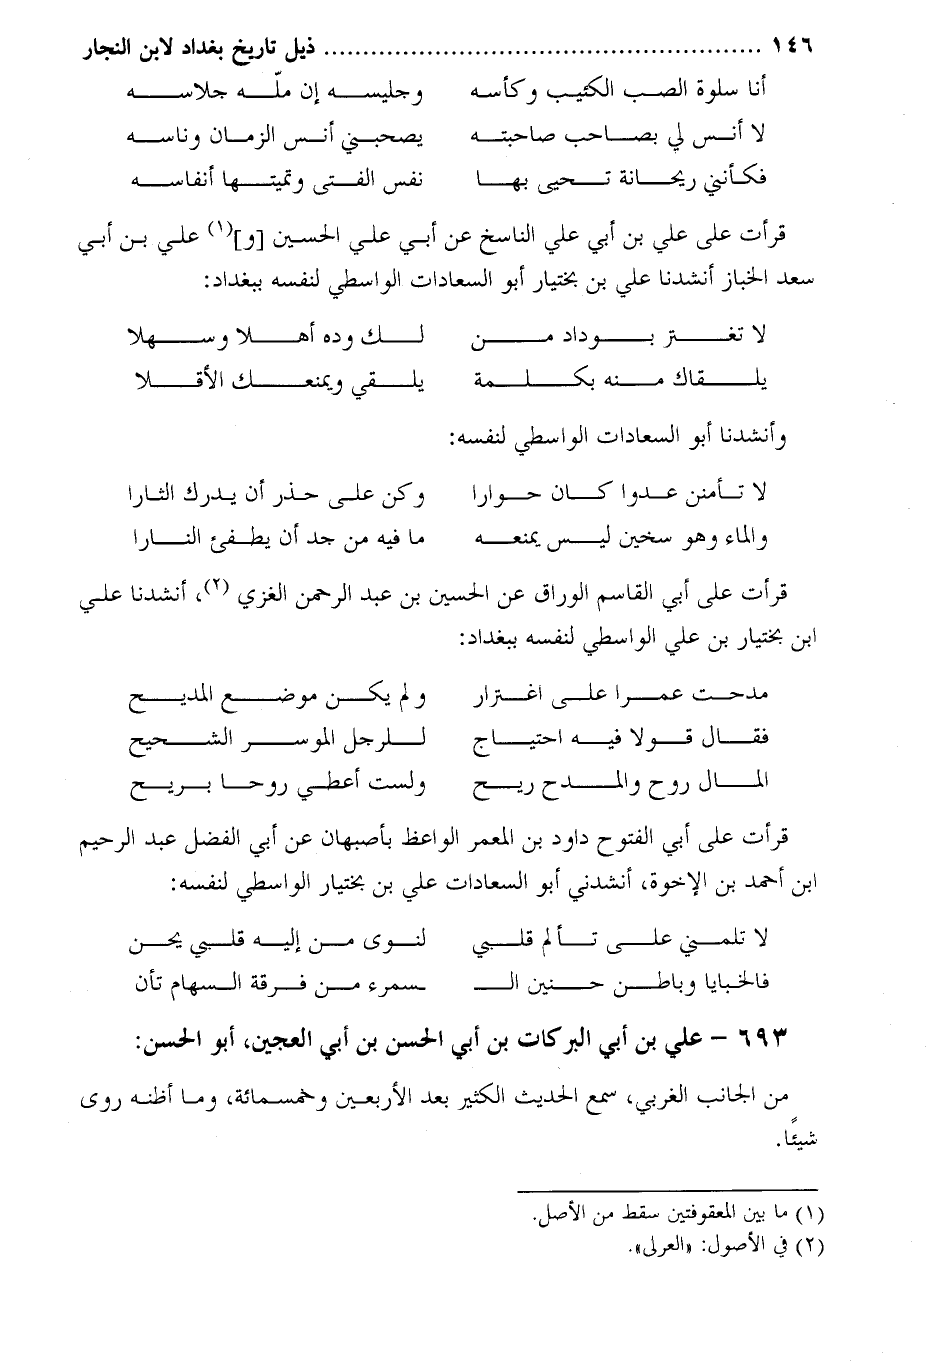 ١٤٦ ........................................................ ذيل تاريخ بغداد لابن النجار
أنا سلوة الصب الكئيب وكأسه وجليسه إن ملّه جلاسه
لا أنس لي بصاحب صاحبته يصحبني أنس الزمان وناسه
فكأنني ريحانة تحيى بها نفس الفتى وتميتها أنفاسه
قرأت على علي بن أبي علي الناسخ عن أبي علي الحسين [و](١) علي بن أبي
سعد الخباز أنشدنا علي بن بختيار أبو السعادات الواسطي لنفسه ببغداد:
لا تغتر بوداد من لك وده أهلا وسهلا
يلقاك منه بكلمة يلقي ويمنعك الأقلا
وأنشدنا أبو السعادات الواسطي لنفسه:
لا تأمنن عدوا كان حوارا وكن على حذر أن يدرك الثارا
والماء وهو سخين ليس يمنعه ما فيه من حد أن يطفئ النارا
قرأت على أبي القاسم الوراق عن الحسين بن عبد الرحمن الغزي (٢)، أنشدنا علي
ابن بختيار بن علي الواسطي لنفسه ببغداد:
مدحت عمرا على اغترار ولم يكن موضع المديح
فقال قولا فيه احتياج للرجل الموسر الشحيح
المال روح والمدح ريح ولست أعطي روحا بريح
قرأت على أبي الفتوح داود بن المعمر الواعظ بأصبهان عن أبي الفضل عبد الرحيم
ابن أحمد بن الإخوة، أنشدني أبو السعادات علي بن بختيار الواسطي لنفسه:
لا تلمني على تألم قلبي لنوى من إليه قلبي يحن
فالخبايا وباطن حنين الـ ـسمرء من فرقة السهام تأن
٦٩٣ – علي بن أبي البركات بن أبي الحسن بن أبي العجين، أبو الحسن:
من الجانب الغربي، سمع الحديث الكثير بعد الأربعين وخمسمائة، وما أظنه روى
شيئًا.
(١) ما بين المعقوفتين سقط من الأصل.
(٢) في الأصول: «العرلى».